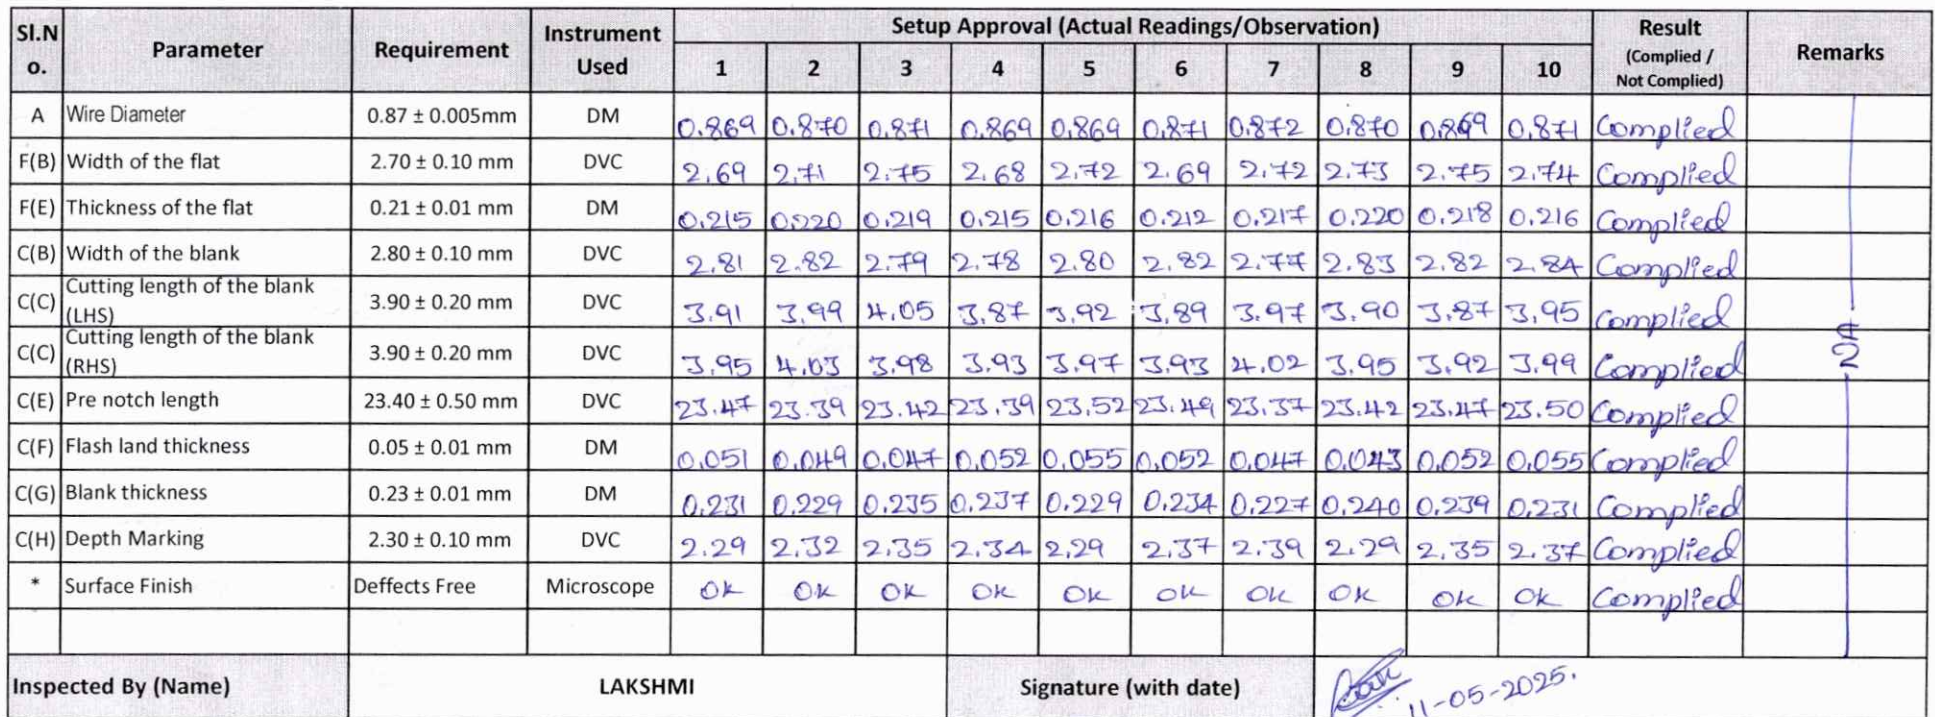 Sl.No. Parameter Requirement Instrument Used Setup Approval (Actual Readings/Observation) Result (Complied / Not Complied) Remarks
1 2 3 4 5 6 7 8 9 10
A Wire Diameter 0.87 ± 0.005mm DM 0.869 0.870 0.871 0.869 0.869 0.871 0.872 0.870 0.869 0.871 Complied
F(B) Width of the flat 2.70 ± 0.10 mm DVC 2.69 2.71 2.75 2.68 2.72 2.69 2.72 2.73 2.75 2.74 Complied
F(E) Thickness of the flat 0.21 ± 0.01 mm DM 0.215 0.220 0.219 0.215 0.216 0.212 0.217 0.220 0.218 0.216 Complied
C(B) Width of the blank 2.80 ± 0.10 mm DVC 2.81 2.82 2.79 2.78 2.80 2.82 2.77 2.83 2.82 2.84 Complied
C(C) Cutting length of the blank (LHS) 3.90 ± 0.20 mm DVC 3.91 3.99 4.05 3.87 3.92 3.89 3.97 3.90 3.87 3.95 Complied
C(C) Cutting length of the blank (RHS) 3.90 ± 0.20 mm DVC 3.95 4.03 3.98 3.93 3.97 3.93 4.02 3.95 3.92 3.99 Complied
C(E) Pre notch length 23.40 ± 0.50 mm DVC 23.47 23.39 23.42 23.39 23.52 23.49 23.37 23.42 23.47 23.50 Complied
C(F) Flash land thickness 0.05 ± 0.01 mm DM 0.051 0.049 0.047 0.052 0.055 0.052 0.047 0.043 0.052 0.055 Complied
C(G) Blank thickness 0.23 ± 0.01 mm DM 0.231 0.229 0.235 0.237 0.229 0.234 0.227 0.240 0.239 0.231 Complied
C(H) Depth Marking 2.30 ± 0.10 mm DVC 2.29 2.32 2.35 2.34 2.29 2.37 2.39 2.29 2.35 2.37 Complied
* Surface Finish Deffects Free Microscope OK OK OK OK OK OK OK OK OK OK Complied
Inspected By (Name) LAKSHMI Signature (with date) 11-05-2025.